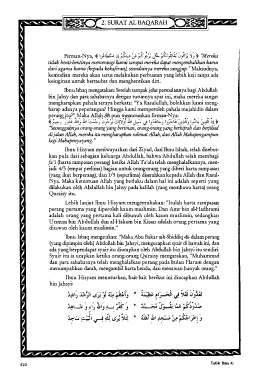 2. SURAT AL-BAQARAH
Firman-Nya, ﴿ وَلَا يَزَالُونَ يُقَاتِلُونَكُمْ حَتَّىٰ يَرُدُّوكُمْ عَن دِينِكُمْ إِنِ اسْتَطَاعُوا ﴾ "Mereka
tidak henti-hentinya memerangi kamu sampai mereka dapat mengembalikan kamu
dari agama kamu (kepada kekafiran), seandainya mereka sanggup." Maksudnya,
kemudian mereka akan terus melakukan perbuatan yang lebih keji tanpa ada
keinginan untuk bertaubat dan menghentikan diri.
Ibnu Ishaq mengatakan: Setelah tampak jelas persoalannya bagi Abdullah
bin Jahsy dan para sahabatnya dengan turunnya ayat ini, maka mereka sangat
mengharapkan pahala seraya berkata: "Ya Rasulullah, bolehkan kami meng-
harap adanya peperangan? Hingga kami memperoleh pahala mujahidin dalam
perang itu?" Maka Allah pun menurunkan firman-Nya:
"Sesungguhnya orang-orang yang beriman, orang-orang yang berhijrah dan berjihad
di jalan Allah, mereka itu mengharapkan rahmat Allah, dan Allah Mahapengampun
lagi Mahapenyayang."
Ibnu Hisyam meriwayatkan dari Ziyad, dari Ibnu Ishak, telah disebut-
kan pula dari sebagian keluarga Abdullah, bahwa Abdullah telah membagi
fa'i (harta rampasan perang) ketika Allah Ta'ala telah menghalalkannya, men-
jadi 4/5 (empat perlima) bagian untuk orang-orang yang diberi harta rampasan
yang ikut berperang), dan 1/5 (seperlima) diserahkan kepada Allah dan Rasul-
Nya. Maka ketentuan Allah yang berlaku dalam hal ini adalah seperti yang
dilakukan oleh Abdullah bin Jahsy pada kafilah (yang membawa harta) orang
Quraisy itu.
Lebih lanjut Ibnu Hisyam mengemukakan: "Itulah harta rampasan
perang pertama yang diperoleh kaum muslimin. Dan Amr bin al-Hadhrami
adalah orang yang pertama kali dibunuh oleh kaum muslimin, sedangkan
Utsman bin Abdullah dan al-Hakam bin Kisan adalah orang pertama yang
ditawan oleh kaum muslimin."
Ibnu Ishaq mengatakan: "Maka Abu Bakar ash-Shiddiq
(yang dipimpin oleh) Abdullah bin Jahsy, mengucapkan syair di bawah ini, dan
ada yang berpendapat syair itu diucapkan oleh Abdullah bin Jahsy itu sendiri.
Syair itu ia ucapkan ketika orang-orang Quraisy mengatakan, "Muhammad
dan para sahabatnya telah menghalalkan perang pada bulan Haram dengan
menumpahkan darah, mengambil harta benda, dan menawan banyak orang."
Ibnu Hisyam menuturkan, bait-bait berikut ini diucapkan Abdullah
bin Jahsy:
تَعُدُّونَ قَتْلًا فِي الْحَرَامِ عَظِيمَةً * وَأَعْظَمُ مِنْهُ لَوْ يَرَى الرُّشْدَ رَاشِدُ
صُدُودُكُمْ عَمَّا يَقُولُ مُحَمَّدٌ * وَكُفْرٌ بِهِ وَاللهُ رَاءٍ وَشَاهِدُ
وَإِخْرَاجُكُمْ مِنْ مَسْجِدِ اللهِ أَهْلَهُ * لِئَلَّا يُرَى لِلَّهِ فِي الْبَيْتِ سَاجِدُ